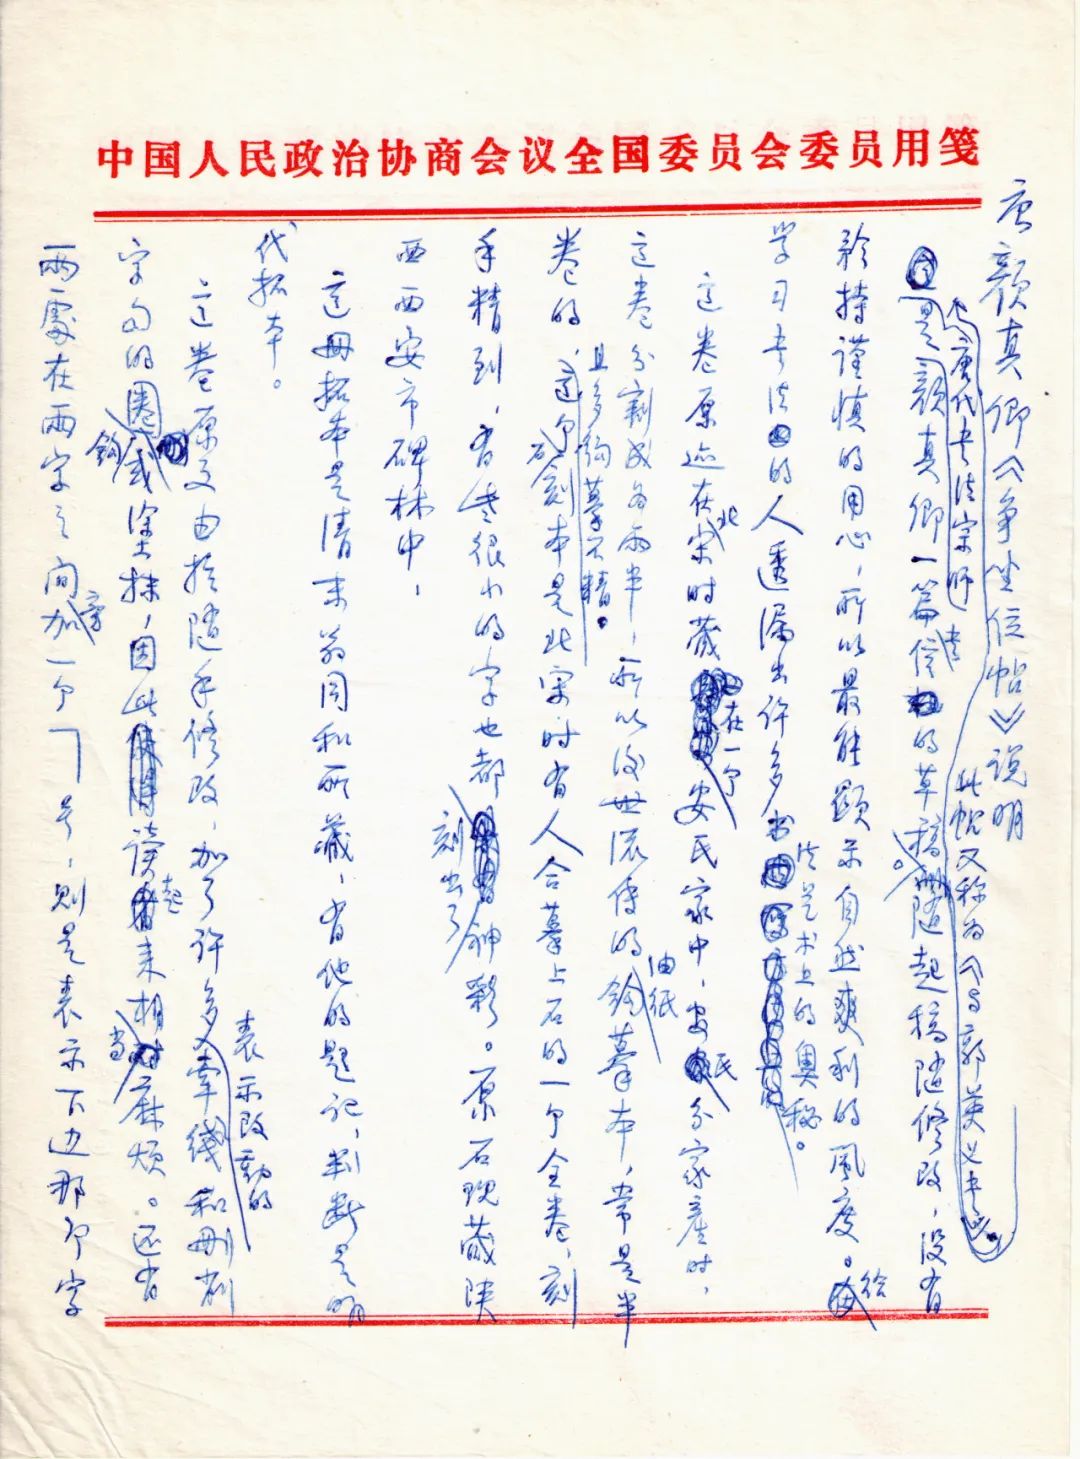 中国人民政治协商会议全国委员会委员用笺
唐颜真卿《争坐位帖》说明
此帖又称为《与郭英乂书》
是唐代书法宗师
颜真卿一篇信书的草稿。随起稿随修改，没有
矜持谨慎的用心，所以最能显示自然爽利的风度。给
学习书法的人透漏出许多书法艺术上的奥秘。
这卷原迹在北宋时藏在一个安氏家中，安氏分家产时，
这卷分割成为两半，所以后世流传的油纸钩摹本，常是半
卷的，且多钩摹不精。这个石刻本是北宋时有人合摹上石的一个全卷，刻
手精到，有些很小的字也都刻出了神彩。原石现藏陕
西西安市碑林中，
这册拓本是清末翁同和所藏，有他的题记，判断是明
代拓本。
这卷原文由于随手修改，加了许多表示改动的牵线和删削
字句的圈钩或涂抹，因此读起来相当麻烦。还有
两处在两字之间旁加一个「㇕」号，则是表示下边那个字